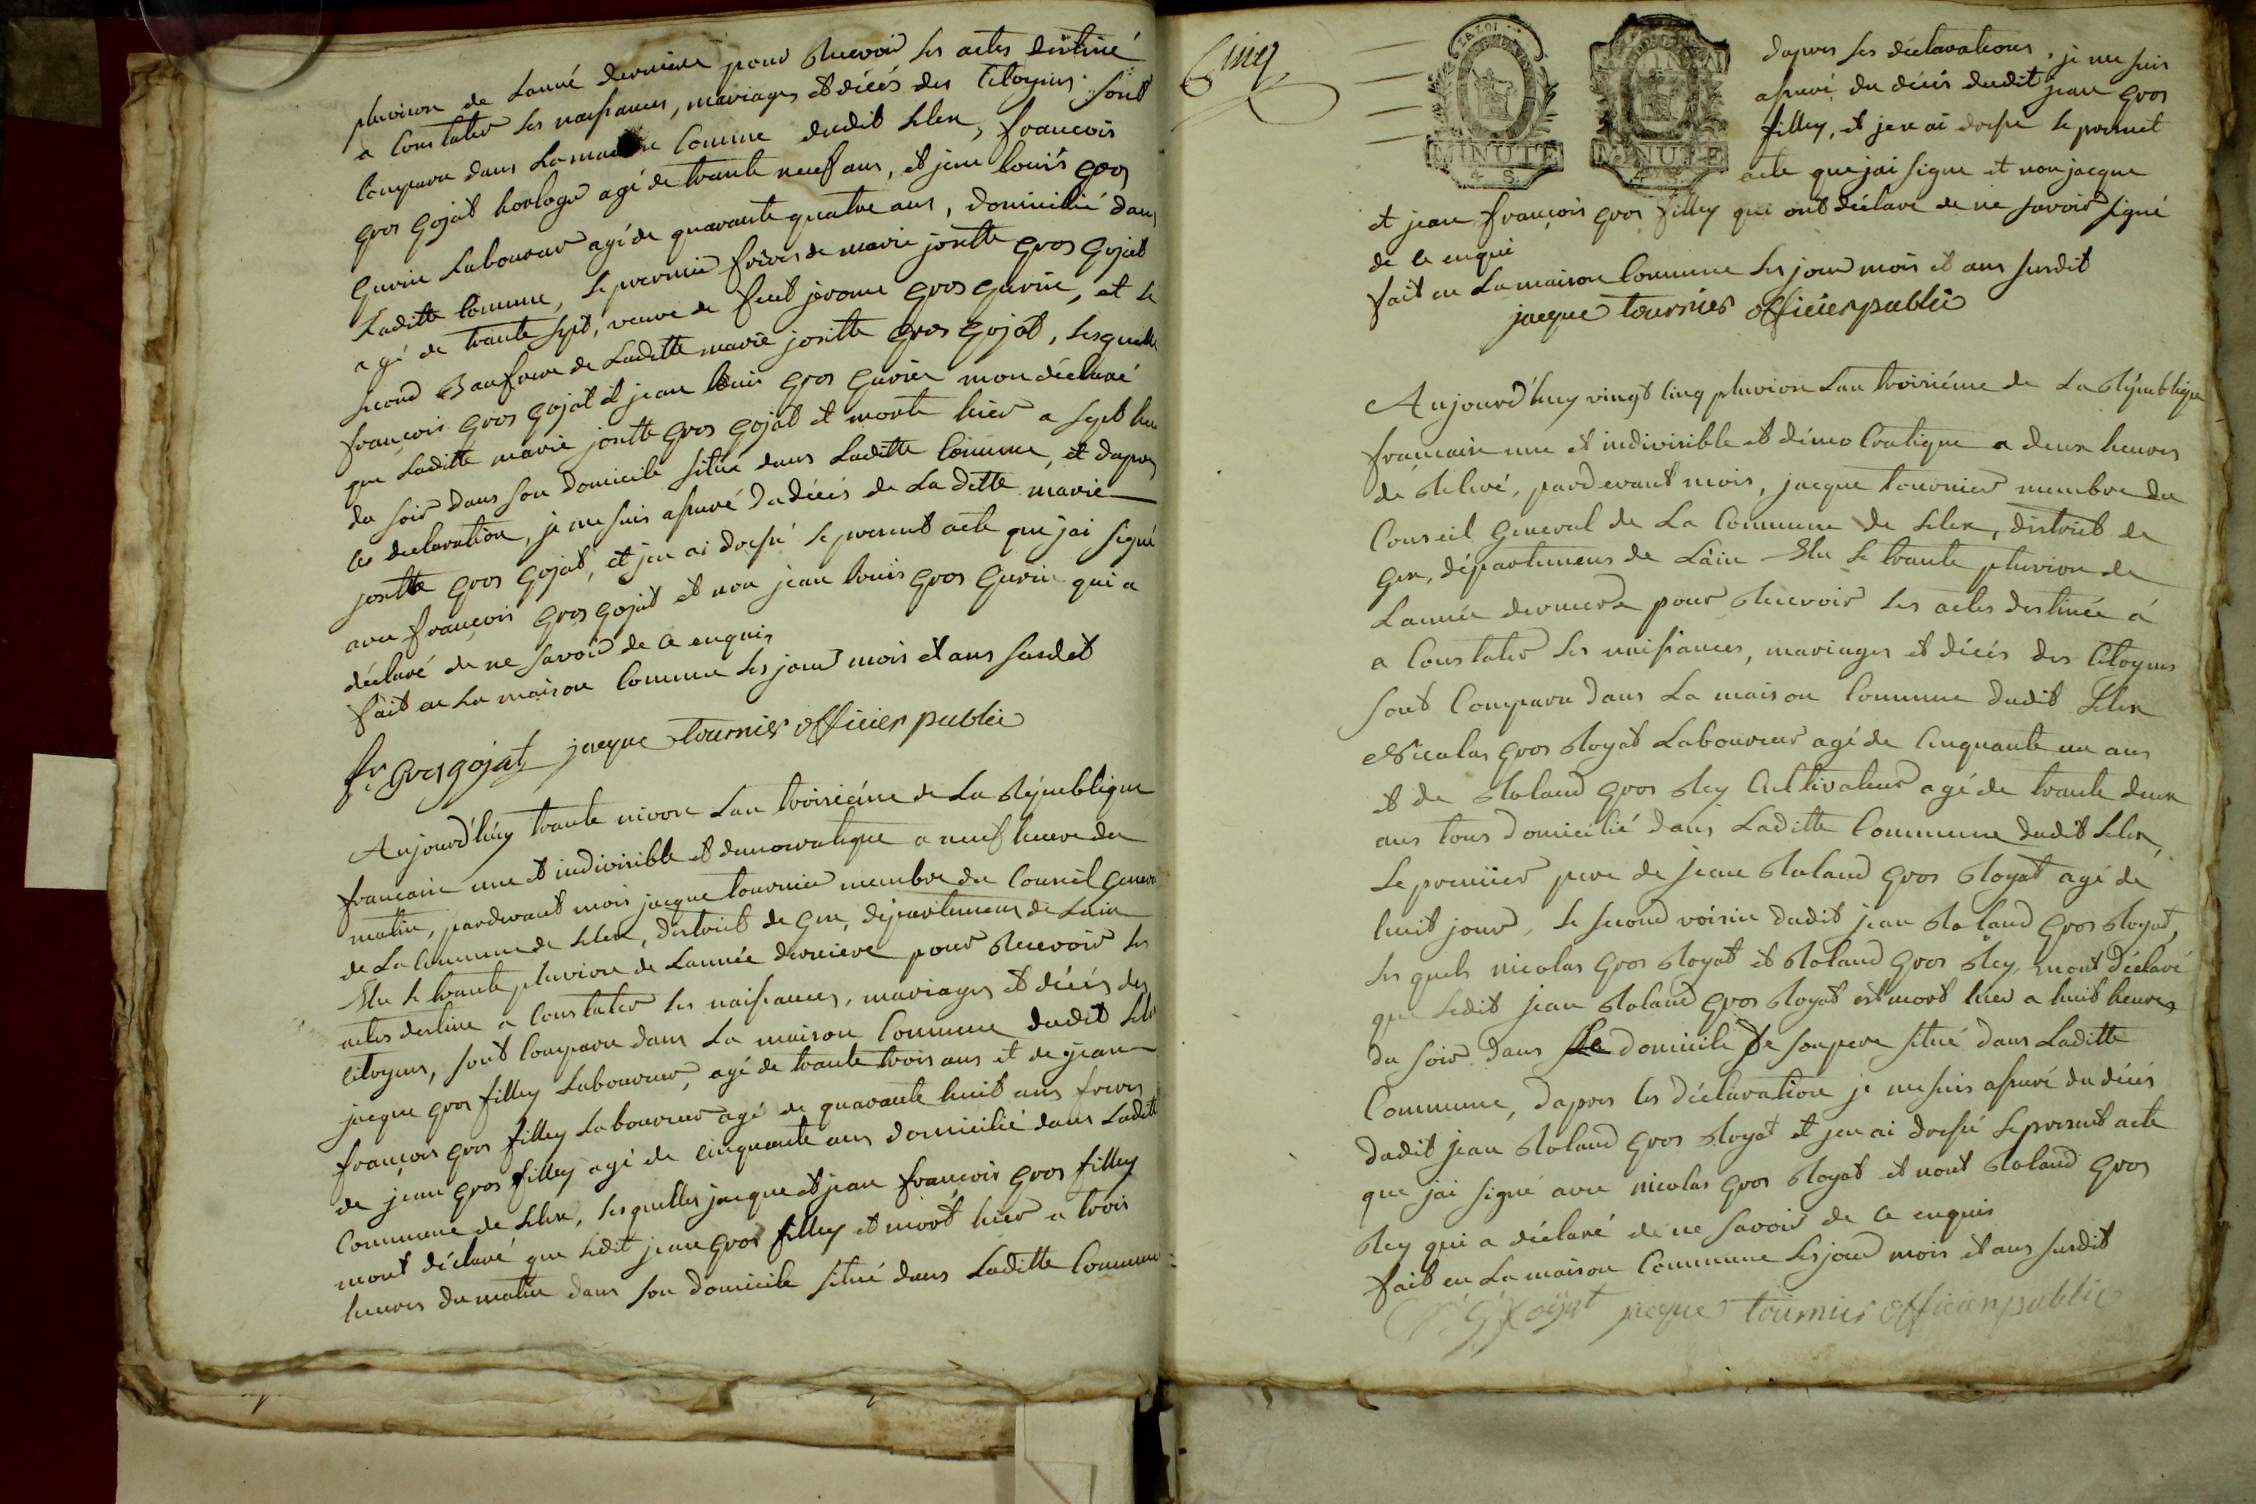 pluviose de Lanné derniere pour Recevoir les actes destiné
a Constater les naissances, mariages et décés des Citoyens sont
comparu dans La maison Comune dudit Lelex, francois
gros gojat horloger agé de trante neuf ans, et jean louis gros
gurin Laboureur agé de quarante quatre ans, domicilié dans
Laditte Commune, le premier frères de marie josette gros gojat
agé de trante sept, veuve de feut jerome gros gurin, et le
second Baufrere de Laditte marie josette gros gojat, lesquelle
françois gros gojat et jean louis gros gurin mon déclaré
que Laditte marie josette gros gojat et morte hier a sept heu
du soir dans son domicile situé dans Laditte Comune, et dapres
ces declaration, je me suis assuré du décés de La ditte marie
josette gros gojat, et jen ai dressé le present acte que jai signé
avec françois gros gojat et non jean louis gros gurin qui a
déclaré de ne savoir de ce enquis
fait en La maison Commune les jour mois et ans susdit
fr. gros gojat jacque tournier officier public
Aujourd'huy trante nivose Lan troisiéme de La République
francaise une et indivisible et democratique a neuf heure du
matin, pardevant mois jacque tournier membre du Conseil general
de La Commune de Lelex, district de gex, départemens de Lain
Elu le trante pluviose de Lannée derniere pour Recevoir les
actes destine a Constater les naissances, mariages et décés des
citoyens, sont comparu dans La maison Commune dudit Lelex
jacque gros filley Laboureur, agé de trante trois ans et de jean
françois gros filley Laboureur agé de quarante huit ans freres
de jean gros filley agé de cinquante ans domicilié dans Laditte
Commune de Lelex, lesquelles jacque et jean françois gros filley
mont déclaré que ledit jean gros filley et mort hier a trois
heures du matin dans son domicile situé dans Laditte Commune
Cinq
LA LOI
MINUTE
4 S.
MINUTE
4 S.
dapres les déclarations, je me suis
assuré du décés dudit jean gros
filley, et jen ai dressé le present
acte que jai signe et non jacque
et jean françois gros filley qui ont déclaré de ne savoir signé
de ce enquis
fait en La maison Commune les jour mois et ans susdit
jacque tournier officier public
Aujourd'huy vingt cinq pluviose Lan troisiéme de La République
française une et indivisible et démocratique a deux heures
de Relevé, pardevant mois, jacque tournier membre du
Conseil general de La Commune de Lelex, district de
gex, départemens de Lain Elu le trante pluviose de
Lannée derniere pour Recevoir les actes destinée á
a Constater les naissances, mariages et décés des Citoyens
sont Comparu dans La maison Commune dudit Lelex
Nicolas gros Royat Laboureur agé de Cinquante un ans
et de Roland gros Rey Cultivateur agé de trante deux
ans tous domicilié dans Laditte Commune dudit Lelex,
Le premiier pere de jean Roland gros Royat agé de
huit jour, le second voisin dudit jean Roland gros Royat,
lesquels nicolas gros Royat et Roland gros Rey, mont déclaré
que ledit jean Roland gros Royat est mort hier a huit heures
du soir dans le domicile de son pere situé dans Laditte
Commune, dapres les déclaration je me suis assuré du décés
dudit jean Roland gros Royat et jen ai dressé le present acte
que jai signé avec nicolas gros Royat et nont Roland gros
Rey qui a déclaré de ne savoir de ce enquis
fait en La maison Commune les jour mois et ans susdit
jacque tournier officier public